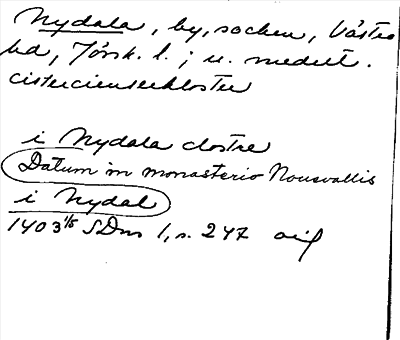 Nydala, by, socken, Västra
hd, Jönk. l.; u. medelt.
cistercienserkloster
i Nydala clostre
Datum in monasterio Nouevallis
i Nydal
1403 1/5 SDns 1, s. 247 avs